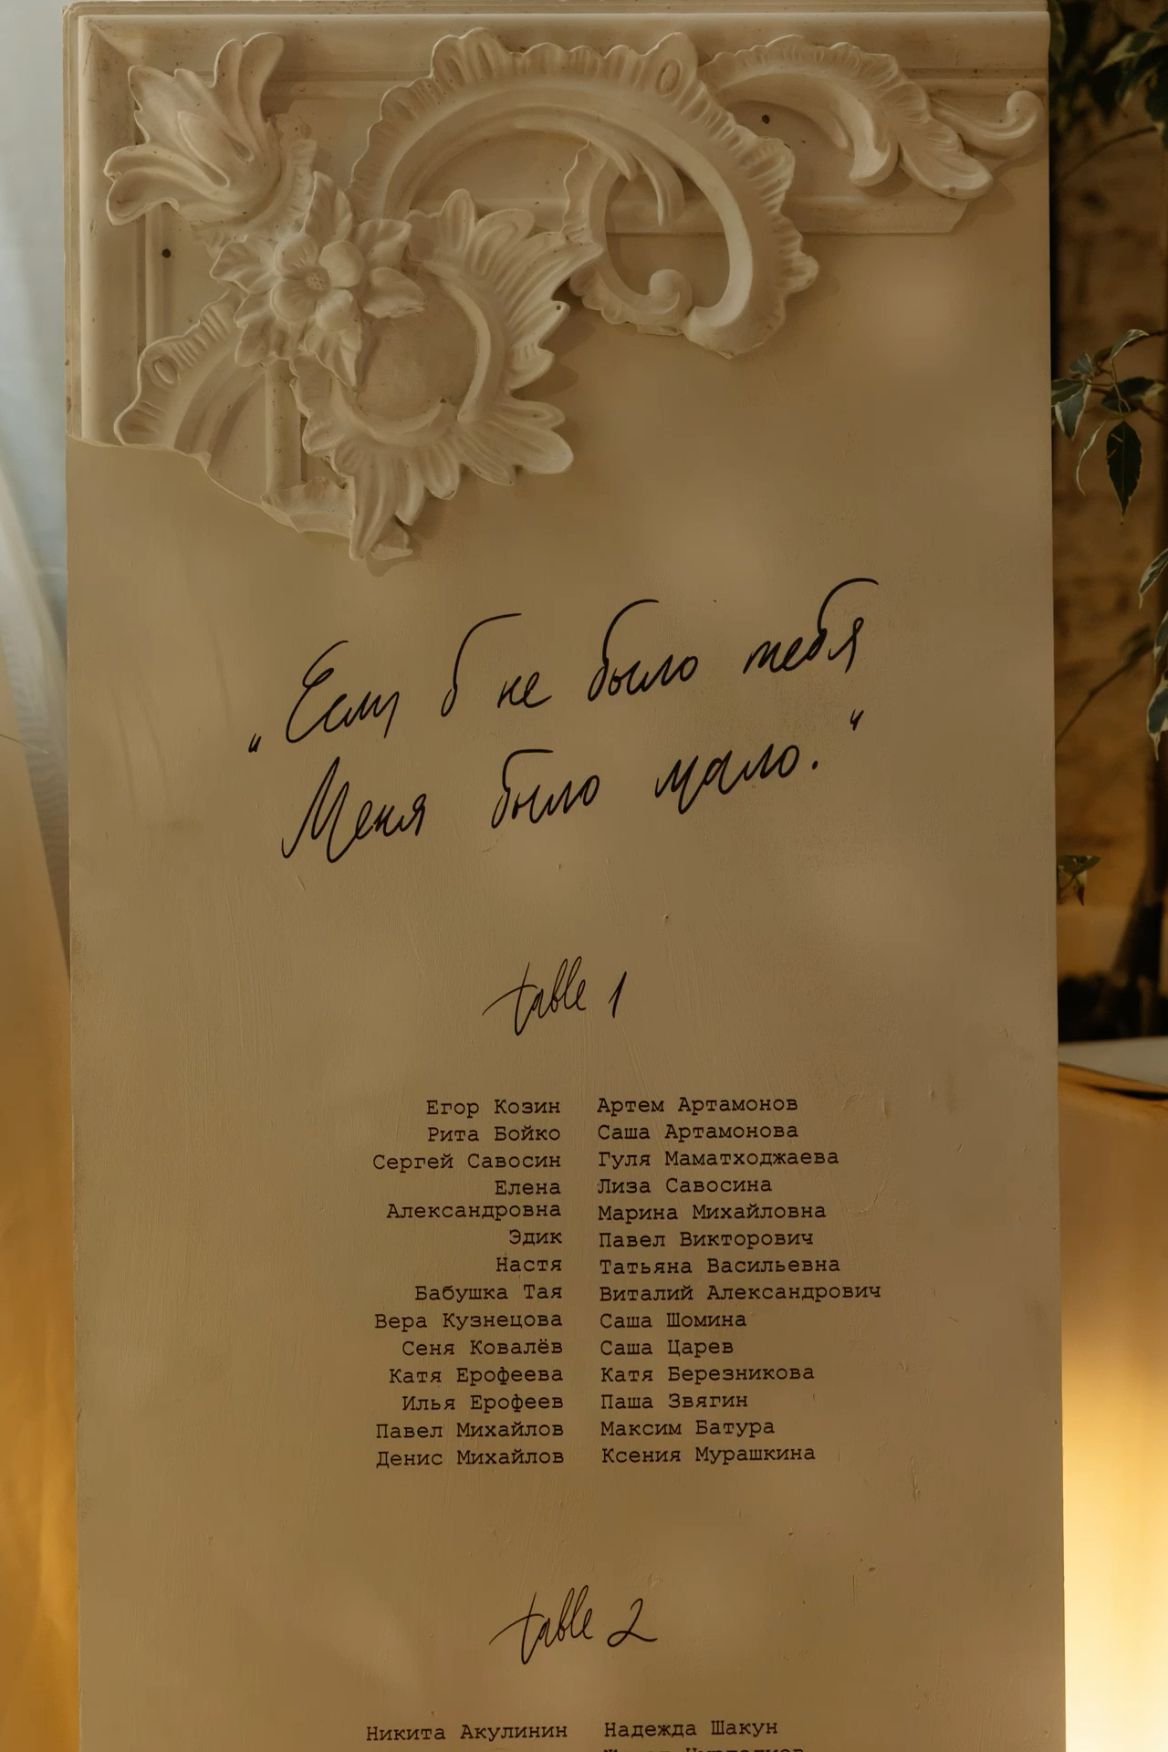 „Если б не было тебя
Меня было мало.“
table 1
Егор Козин
Рита Бойко
Сергей Савосин
Елена
Александровна
Эдик
Настя
Бабушка Тая
Вера Кузнецова
Сеня Ковалёв
Катя Ерофеева
Илья Ерофеев
Павел Михайлов
Денис Михайлов
Артем Артамонов
Саша Артамонова
Гуля Маматходжаева
Лиза Савосина
Марина Михайловна
Павел Викторович
Татьяна Васильевна
Виталий Александрович
Саша Шомина
Саша Царев
Катя Березникова
Паша Звягин
Максим Батура
Ксения Мурашкина
table 2
Никита Акулинин
Надежда Шакун